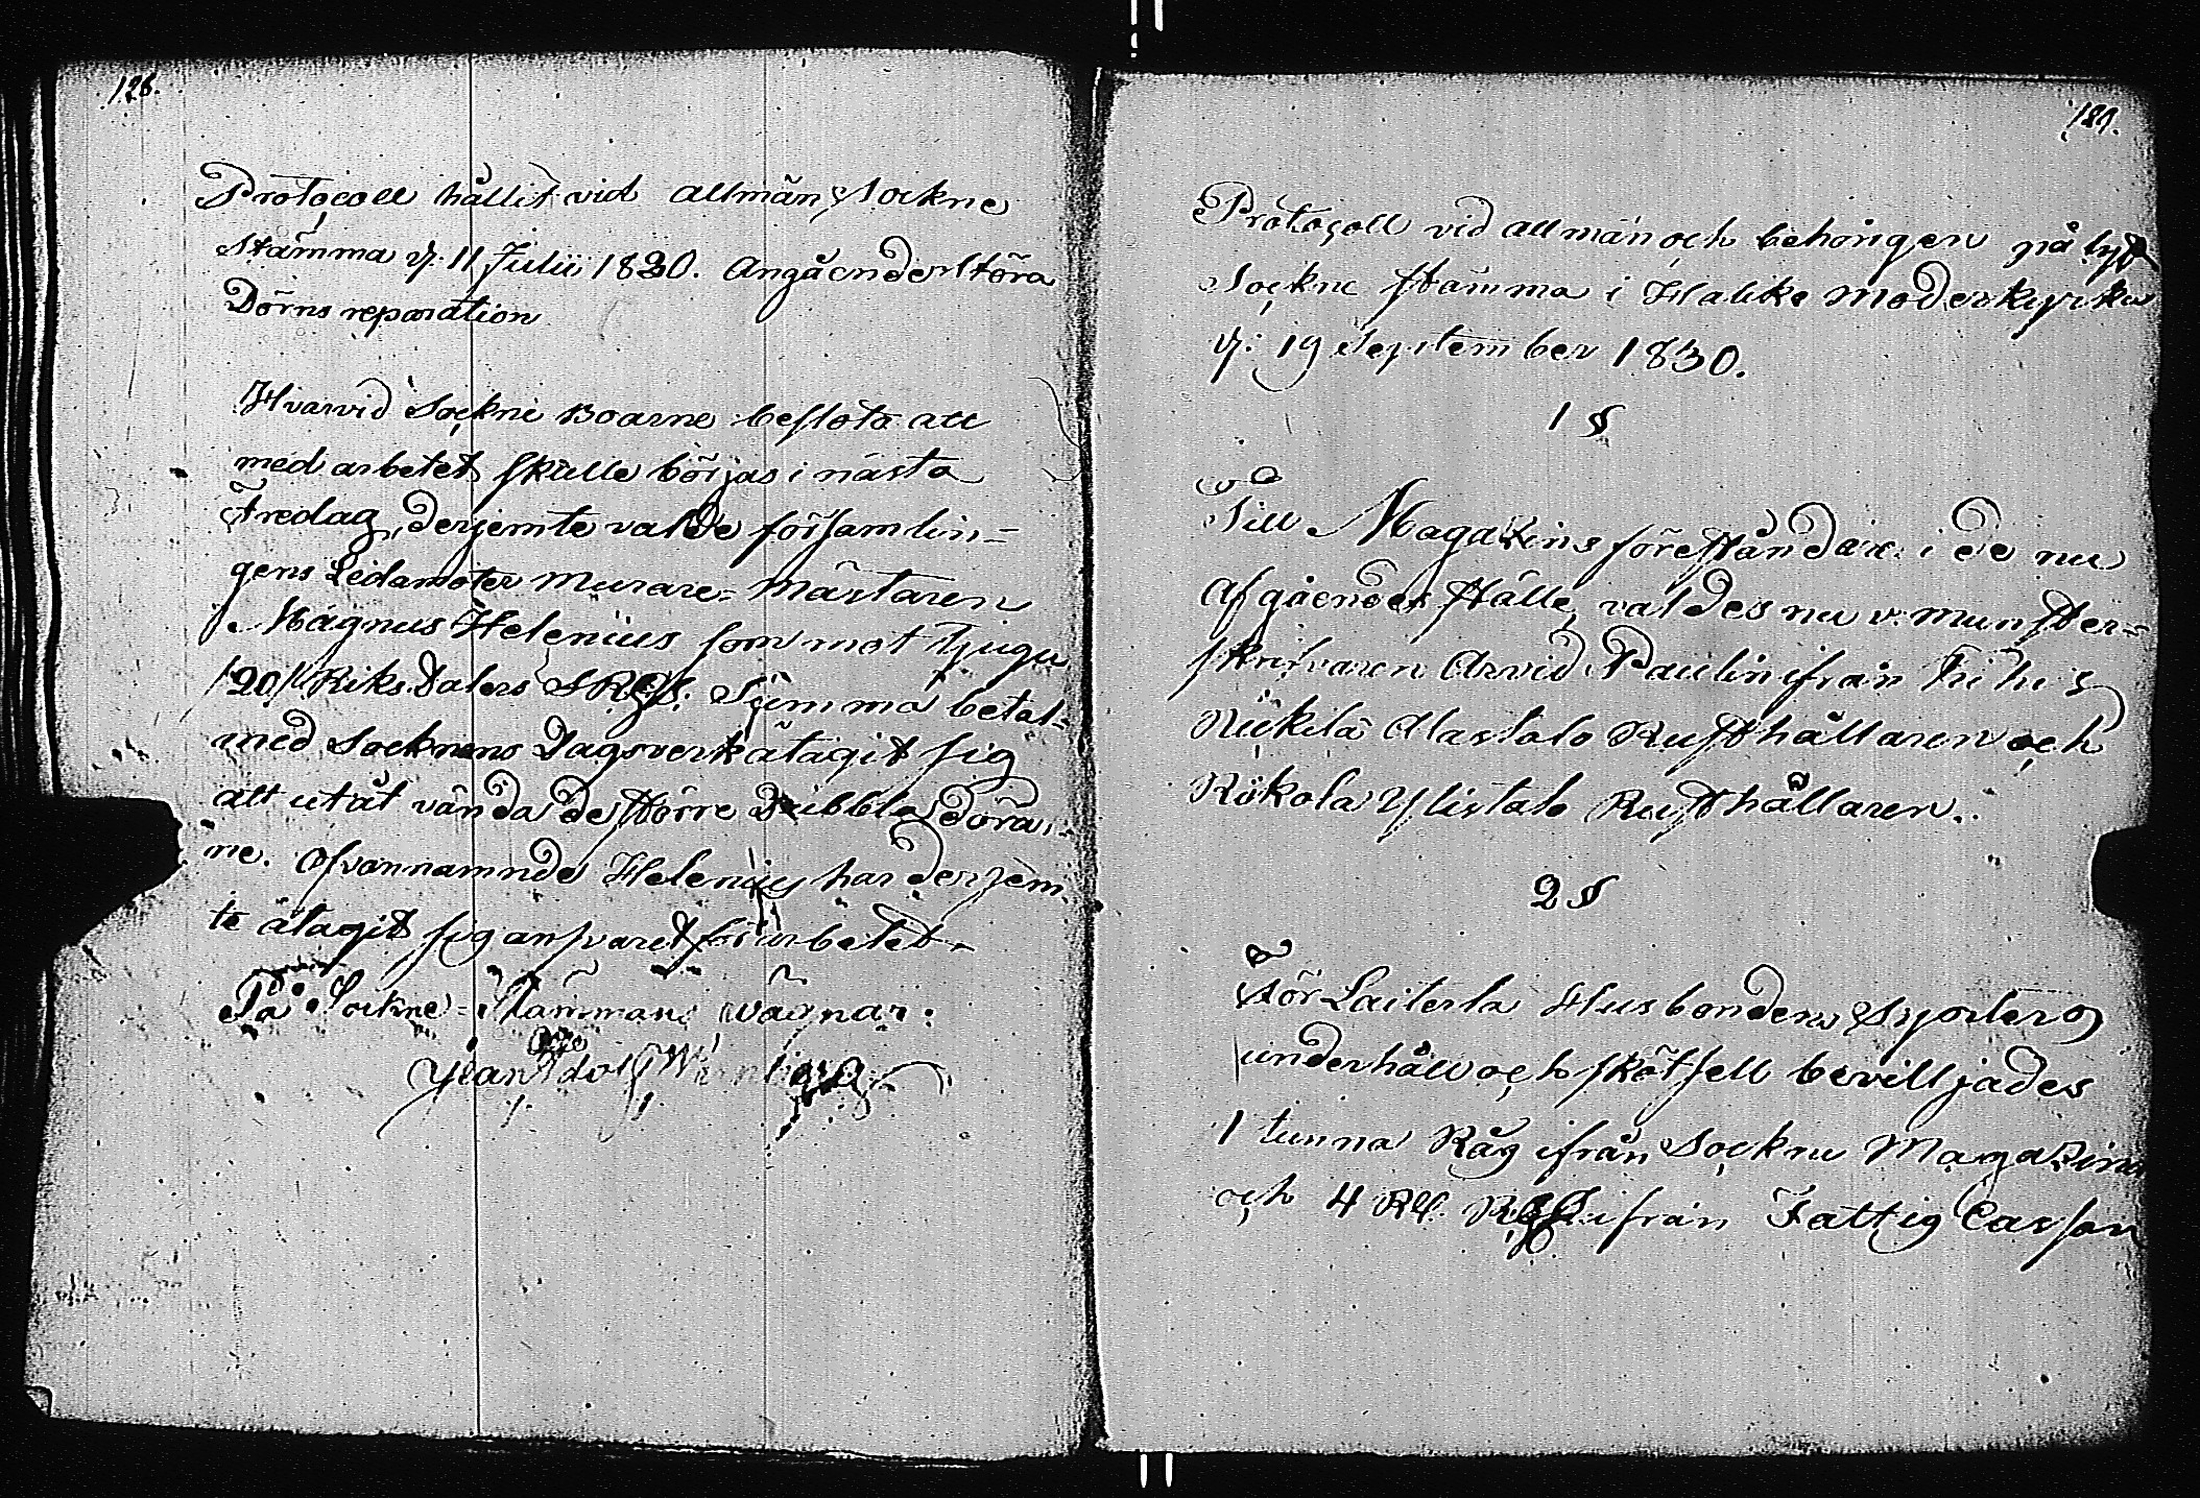 126.
Protocoll hållit vid allmän Sockne
Stämma d. 11 Julii 1830. Angående Stora
Dörns reparation
Hvarvid Sockne Boarne besloto att
med arbetet skulle börjas i nästa
Fredag, derjemte valde församlin=
gens Ledamöter Murare=Mästaren
Magnus Helenius som mot tjugu
/20/ Riks Dalers S Rgs. Summa betal=
med Socknens Dagsverk åtagit sig
att utåt vända de större Dubbla dörar=
ne. Ofvannamnde Helenius har derjem
te åtagit sig ansvaret för arbetet.
På Sockne=Stämmans vägnar:
189.
Protocoll vid allmän och behörigen på lyst
Sockne stämma i Haliko moderkyrka
d: 19 September 1830.
1 §
Till Magazins föreståndare i de nu
afgåendes ställe, valdes nu v. munster=
skrifvaren Arvid Paulin ifrån
Alastalo Rusthållaren och
Rökola Ylistalo Rusthållaren.
2 §
För Laiterla Husbondens
underhåll och skötsell bevilljades
1 tunna Råg ifrån Sockne Magazin
och 4 Rd. Rgs ifrån Fattig Cassan